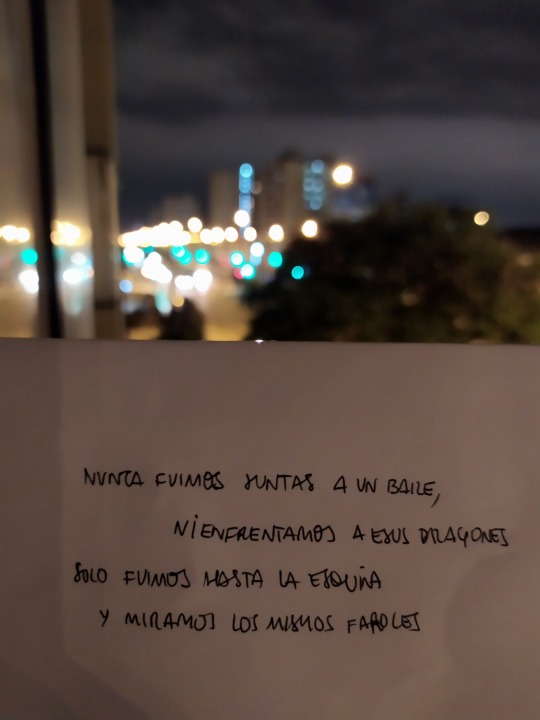 NUNCA FUIMOS JUNTAS A UN BAILE,
NI ENFRENTAMOS A ESOS DRAGONES
SOLO FUIMOS HASTA LA ESQUINA
Y MIRAMOS LOS MISMOS FAROLES